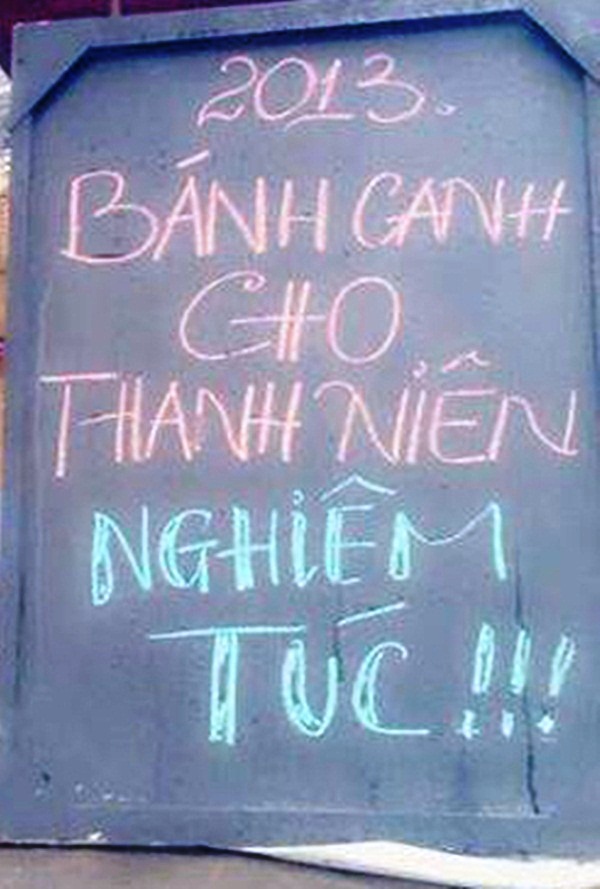 2013.
BÁNH CANH
CHO
THANH NIÊN
NGHIÊM
TÚC!!!